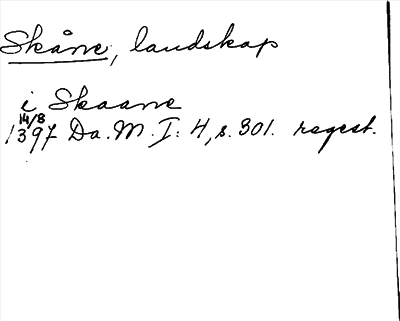 Skåne, landskap
i Skaane
14/8
1397 Da. M. I: 4, s. 301. regest.